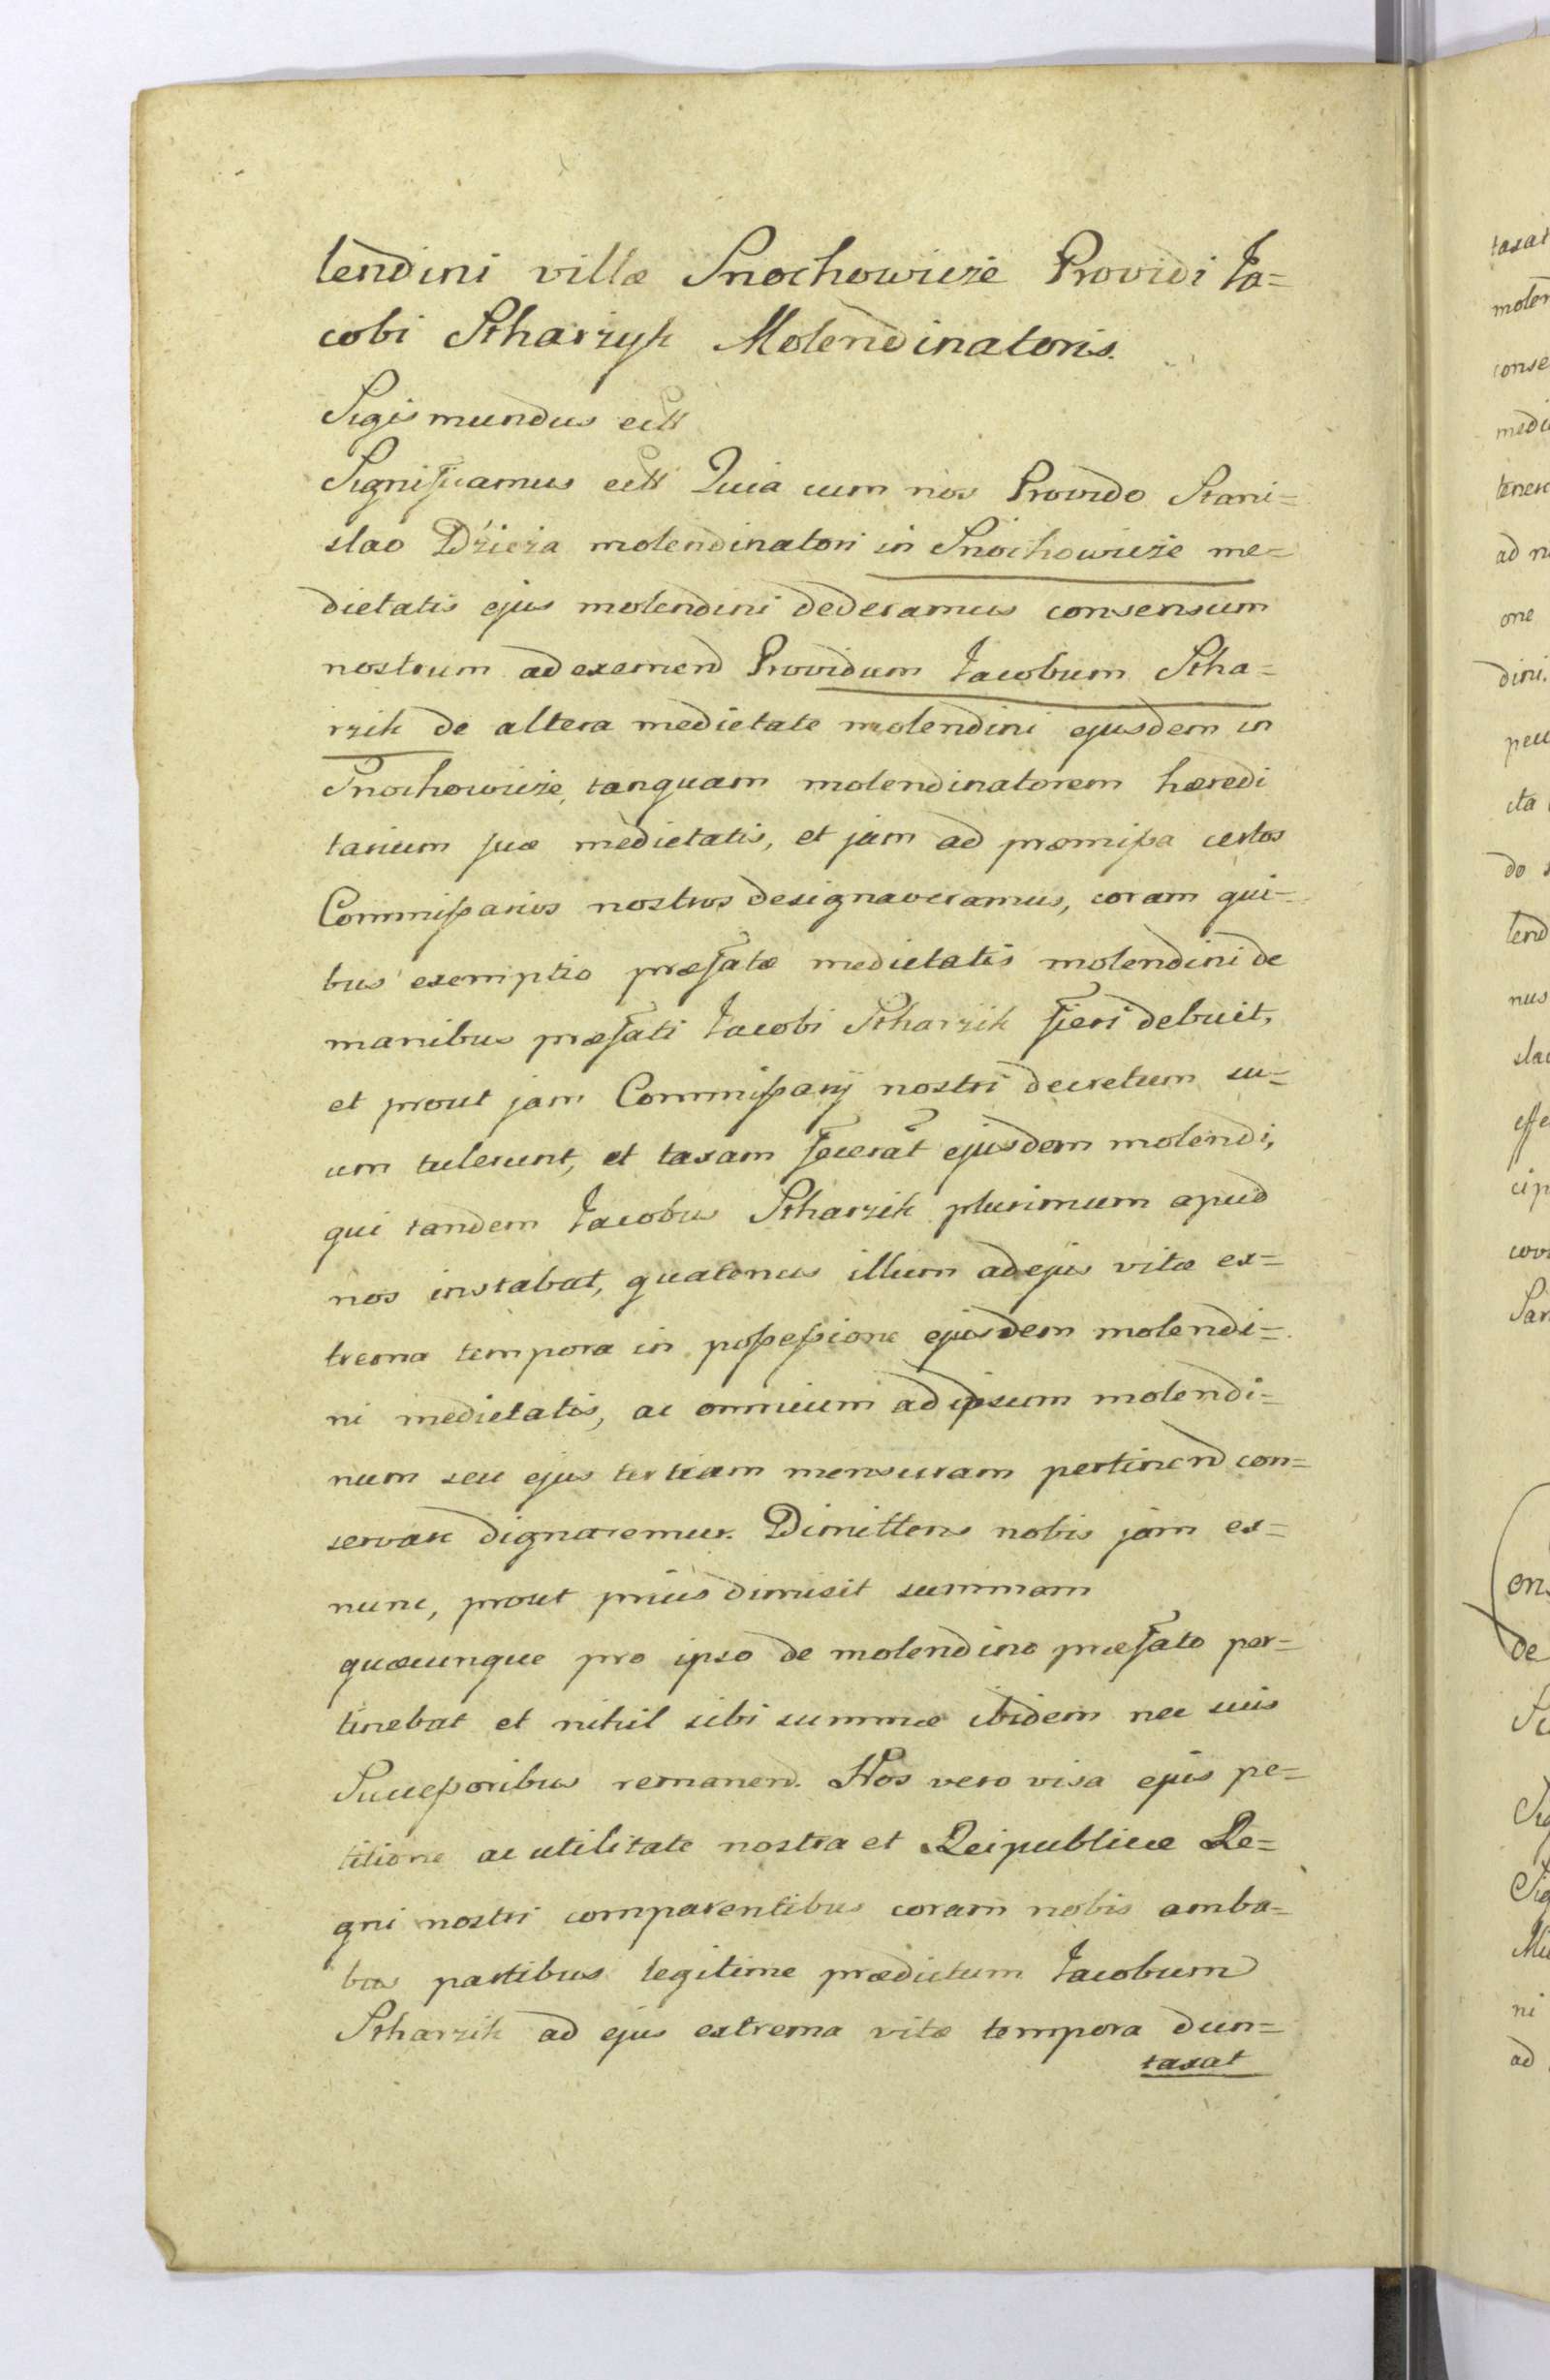 lendini villæ Snochowicze Providi Ja=
cobi Stharzyk Molendinatoris.
Sigismundus ett
Significamus ett Quia cum nos Provido Stani=
slao Dzieża molendinatori in Snochowicze me=
dietatis ejus molendini dederamus consensum
nostrum ad exemend Providum Jacobum Stha=
rzik de altera medietate molendini ejusdem in
Snochowicze, tanquam molendinatorem hæredi
tarium suæ medietatis, et jam ad præmissa certos
Commissarios nostros designaveramus, coram qui=
bus exemptio præfatæ medietatis molendini de
manibus præfati Jacobi Stharzik fieri debuit,
et prout jam Commissarij nostri decretum su=
um tulerunt, et taxam fecerat ejusdem molendi,
qui tandem Jacobus Stharzik plurimum apud
nos instabat, quatenus illum ad ejus vitæ ex=
trema tempora in possessione ejusdem molendi=
ni medietatis, ac omnium ad ipsum molendi=
num seu ejus tertiam mensuram pertinend con=
servare dignaremur. Dimittens nobis jam ex=
nunc, prout prius dimisit summam
quæcunque pro ipso de molendino præfato per=
tinebat et nihil sibi summæ ibidem nec suis
Successoribus remanend. Nos vero visa ejus pe=
titione ac utilitate nostra et Reipublicæ Re=
gni nostri comparentibus coram nobis amba=
bus partibus legitime prædictum Jacobum
Stharzik ad ejus extrema vitæ tempora dun=
taxat